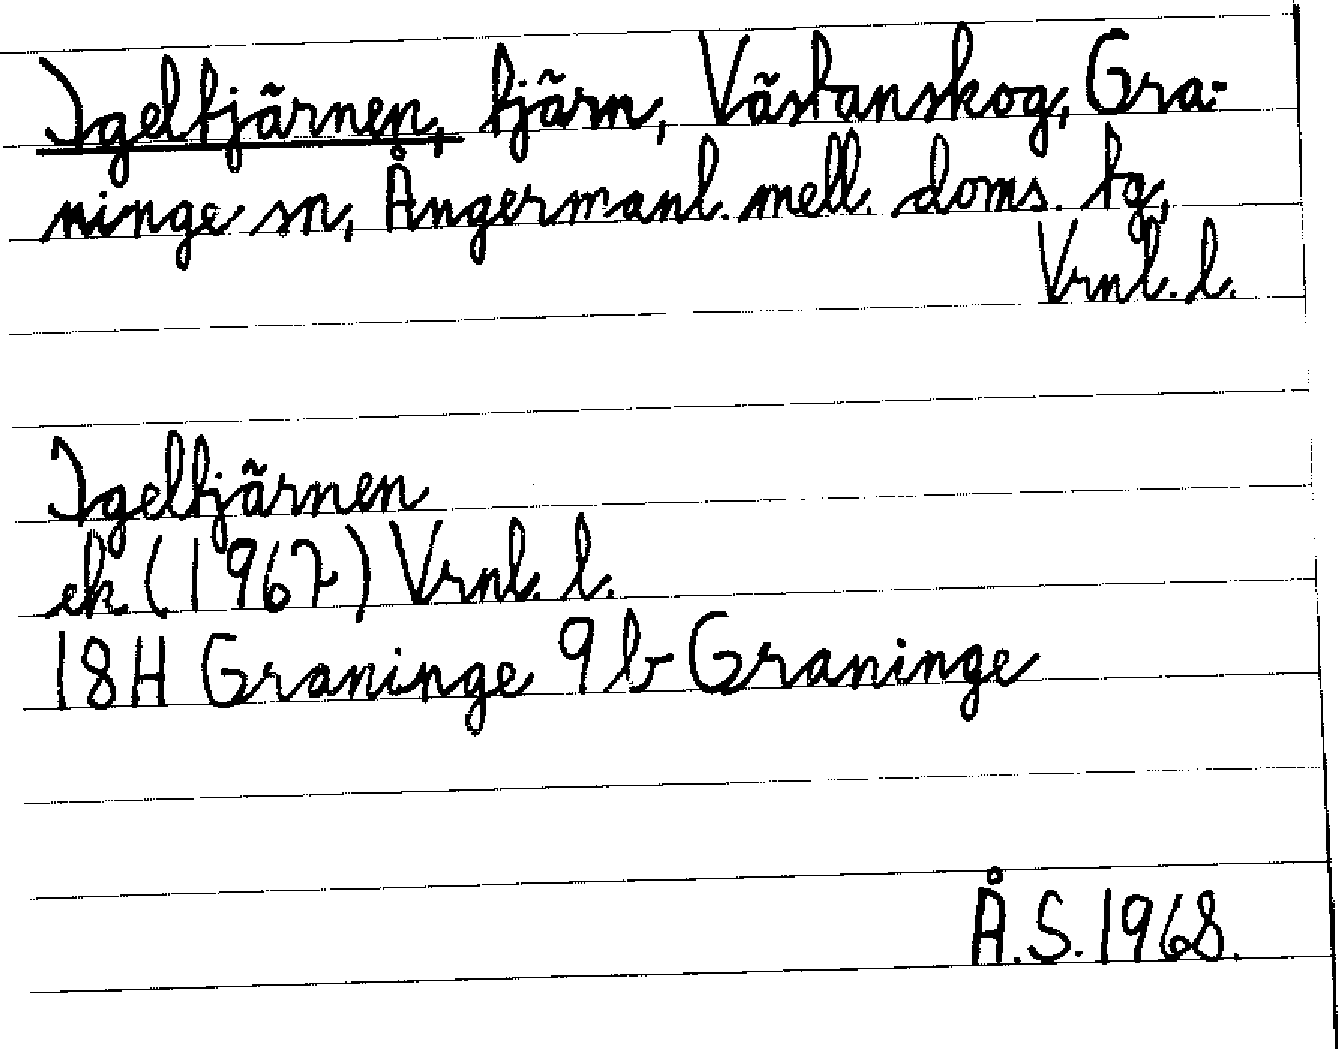 Igeltjärnen, tjärn, Västanskog, Gra-
ninge sn, Ångermanl. mell. doms. tg,
Vrnl. l.
Igeltjärnen
ek (1967) Vrnl. l.
18H Graninge 9 b Graninge
Å.S. 1968.